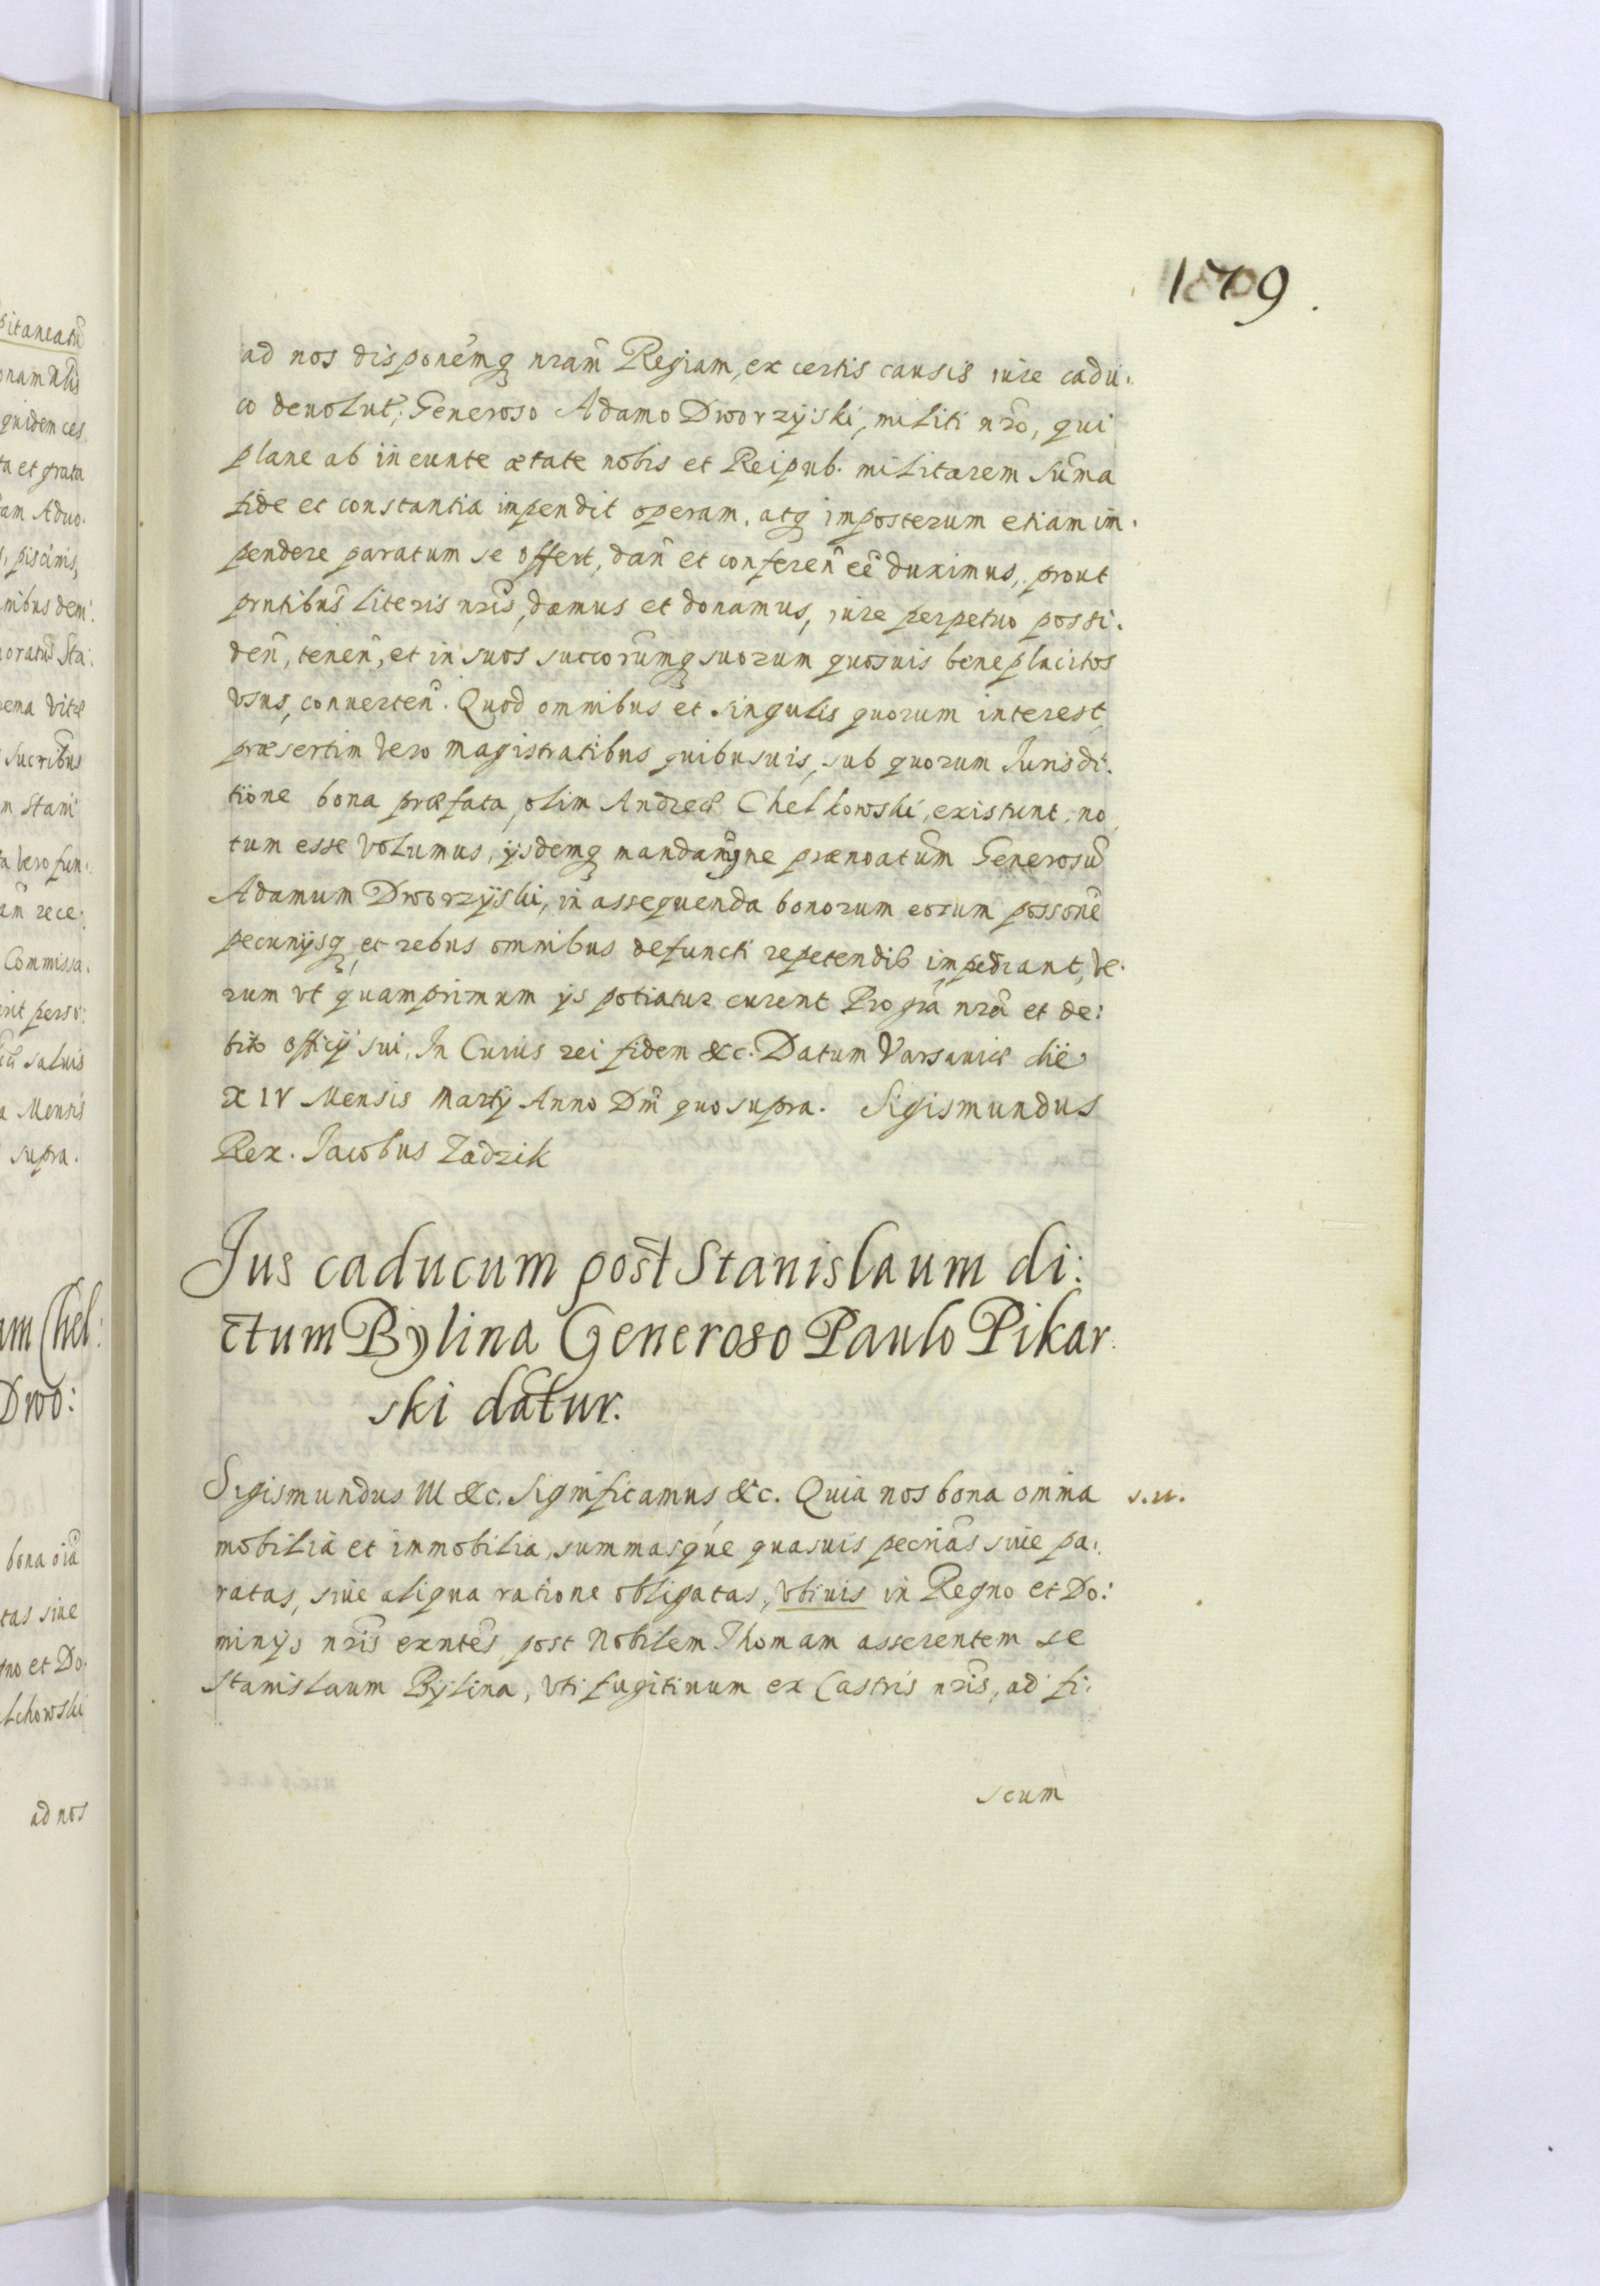 1809
ad nos disponẽmq nram̃ Regiam, ex certis causis iure cadu.
co deuolut̃, Generoso Adamo Dworzyski, militi nr̃o, qui
plane ab ineunte ætate nobis et Reipub. militarem sum̃a
fide et constantia inpendit operam, atq imposterum etiam im.
pendere paratum se offert, dañ et conferen̄ eē duximus, prout
prntibus̃ literis nris̃, damus et donamus, iure perpetuo possi.
deñ, teneñ, et in suos succorum̃q suorum quosuis beneplacitos
vsus, conuerteñ. Quod omnibus et singulis quorum interest,
præsertim vero magistratibus quibusuis, sub quorum Iurisdi.
tione bona præfata, olim Andreæ Chelkowski, existunt, no
tum esse volumus, ijsdemq mandam̃ ne prænoatum̃ Generosũ
Adamum Dworzyski, in assequenda bonorum eorum possonẽ
pecunijsq, et rebus omnibus defuncti repetendis impediant, ve.
rum vt quamprimum ijs potiatur curent Pro gr̃a nrã et de:
bito officij sui. In Cuius rei fidem &c. Datum Varsauiæ die
XIV Mensis Martij Anno Dm̃ quo supra. Sigismundus
Rex. Jacobus Zadzik
Jus caducum post Stanislaum di:
ctum Bylina Generoso Paulo Pikar.
ski datur.
Sigismundus III &c. Significamus &c. Quia nos bona omnia
mobilia et immobilia, summasque quasuis pecñias siue pa.
ratas, siue aliqua ratione obligatas, vbiuis in Regno et Do:
minijs nris̃ exntes̃, post Nobilem Thomam asserentem se
Stanislaum Bylina, vti fugitiuum ex Castris nris̃, ad fi.
scum
pitaneatũ
quidem ces
ta et grata
am Aduo.
, piscinis,
nibus dem.
oratus Sta.
ema vitæ
sucribus
m Stani
a vero fun.
am̃ rece.
Commissa.
rit perso:
saluis
a Mensis
supra.
am Chel:
Dwo:
bona oiã
tas siue
gno et Do.
lchowski
ad nos